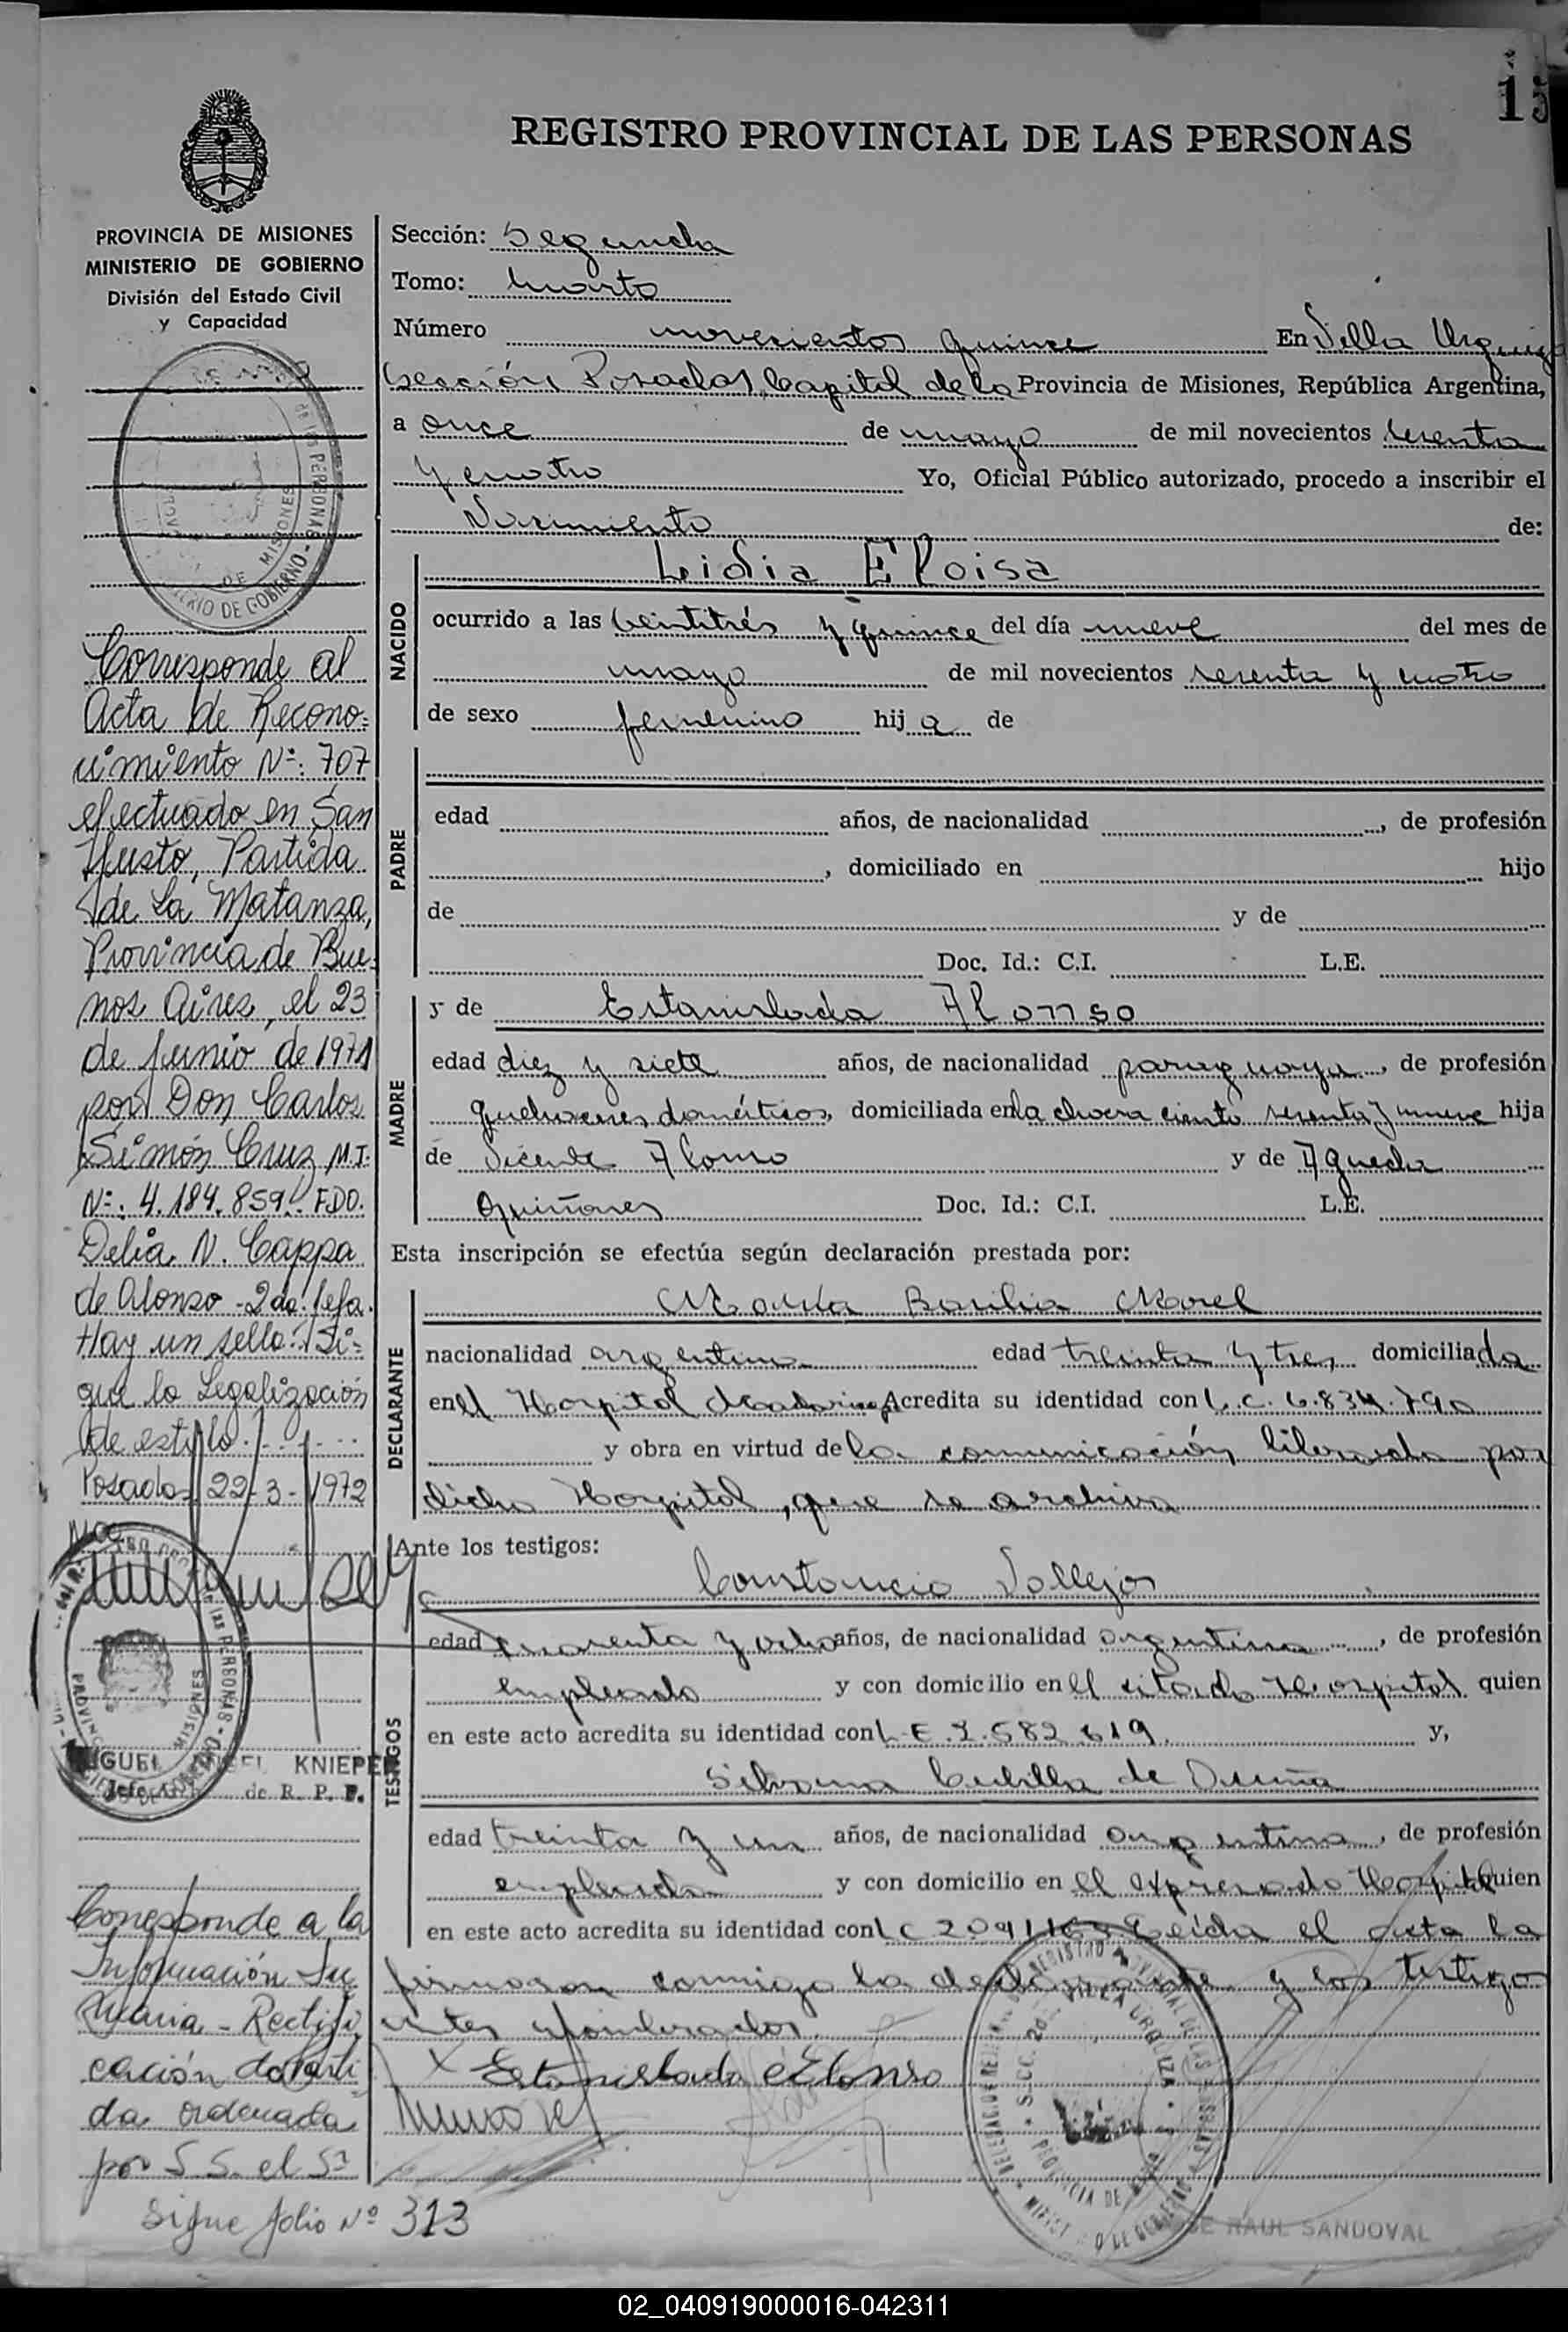 15
REGISTRO PROVINCIAL DE LAS PERSONAS
PROVINCIA DE MISIONES
MINISTERIO DE GOBIERNO
División del Estado Civil
y Capacidad
Corresponde al
Acta de Recono=
cimiento Nº: 707
efectuado en San
Justo, Partida
de La Matanza,
Provincia de Bue=
nos Aires, el 23
de Junio de 1971
por Don Carlos
Simón Cruz M.I.
Nº: 4.184.859. FDO.
Delia N. Cappa
de Alonso - 2da. Jefa.
Hay un sello: Si=
gue la Legalización
de estilo
Posadas 22-3-1972
MIGUEL ANGEL KNIEPER
Jefe de R. P. P.
Corresponde a la
Información Su
maria - Rectifi
cación de Parti
da ordenada
por S.S. el Sr
Sigue folio Nº 313
Sección: Segunda
Tomo: Cuarto
Número novecientos quince En Villa Urquiza
(sección Posadas) Capital de la Provincia de Misiones, República Argentina,
a once de mayo de mil novecientos sesenta
y cuatro Yo, Oficial Público autorizado, procedo a inscribir el
Nacimiento de:
NACIDO
Lidia Eloisa
ocurrido a las veintitrés y quince del día nueve del mes de
mayo de mil novecientos sesenta y cuatro
de sexo femenino hija de
PADRE
edad años, de nacionalidad , de profesión
, domiciliado en hijo
de y de
Doc. Id.: C.I. L.E.
MADRE
y de Estanislada Alonso
edad diez y siete años, de nacionalidad paraguaya, de profesión
quehaceres domésticos, domiciliada en la chacra ciento sesenta y nueve hija
de Vicente Alonso y de Agueda
Quiñones Doc. Id.: C.I. L.E.
Esta inscripción se efectúa según declaración prestada por:
DECLARANTE
María Basilia Morel
nacionalidad argentina edad treinta y tres domiciliada
en el Hospital Madariaga Acredita su identidad con L.C. 6.834.790
y obra en virtud de la comunicación librada por
dicho Hospital, que se archiva
Ante los testigos:
TESTIGOS
Constancio Vallejos
edad cuarenta y ocho años, de nacionalidad argentina, de profesión
empleado y con domicilio en el citado Hospital quien
en este acto acredita su identidad con L.E. 1.582.619 y,
Silvana Cubilla de Osuña
edad treinta y un años, de nacionalidad argentina, de profesión
empleada y con domicilio en el expresado Hospital quien
en este acto acredita su identidad con L C Leída el acta la
firmaron conmigo la declarante y los testigos
antes nombrados.
X Estanislada Alonso
JOSE RAUL SANDOVAL
02_040919000016-042311